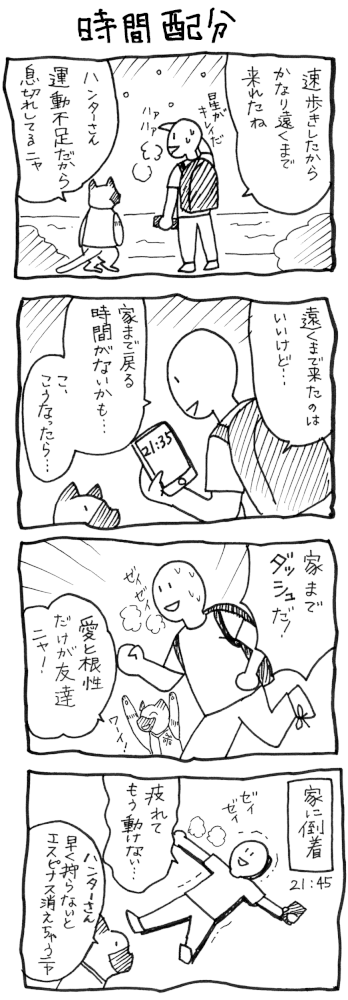 時間配分
速歩きしたから
かなり遠くまで
来れたね
星が
キレイだ
ハァ
ハァ
ハンターさん
運動不足だから
息切れしてるニャ
遠くまで来たのは
いいけど…
21:35
家まで戻る
時間がないかも…
こ、
こうなったら…
家まで
ダッシュだ!
ゼイ
ゼイ
愛と根性
だけが友達
ニャー!
ワーイ!
家に到着
21:45
ゼイ
ゼイ
疲れて
もう動けない…
ハンターさん
早く狩らないと
エスピナス消えちゃうニャ